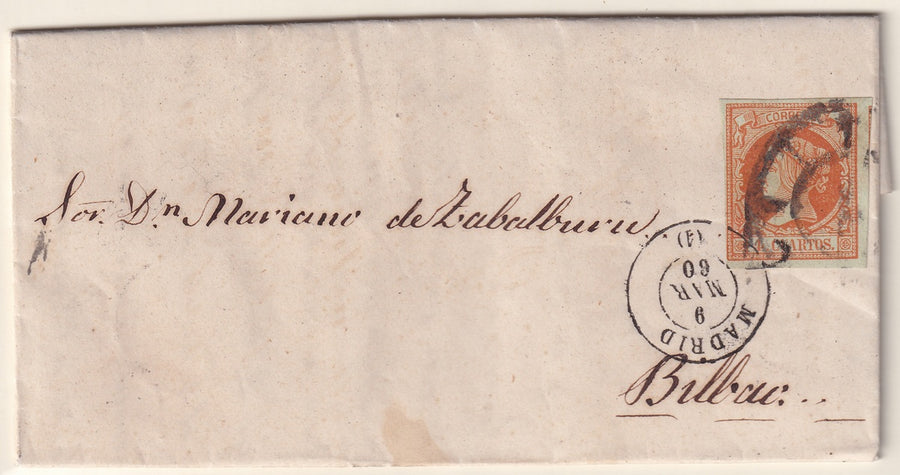 CORREOS
CUARTOS.
Sor. Dn Mariano de Zabalburu
MADRID
MAR
60
(4)
Bilbao.